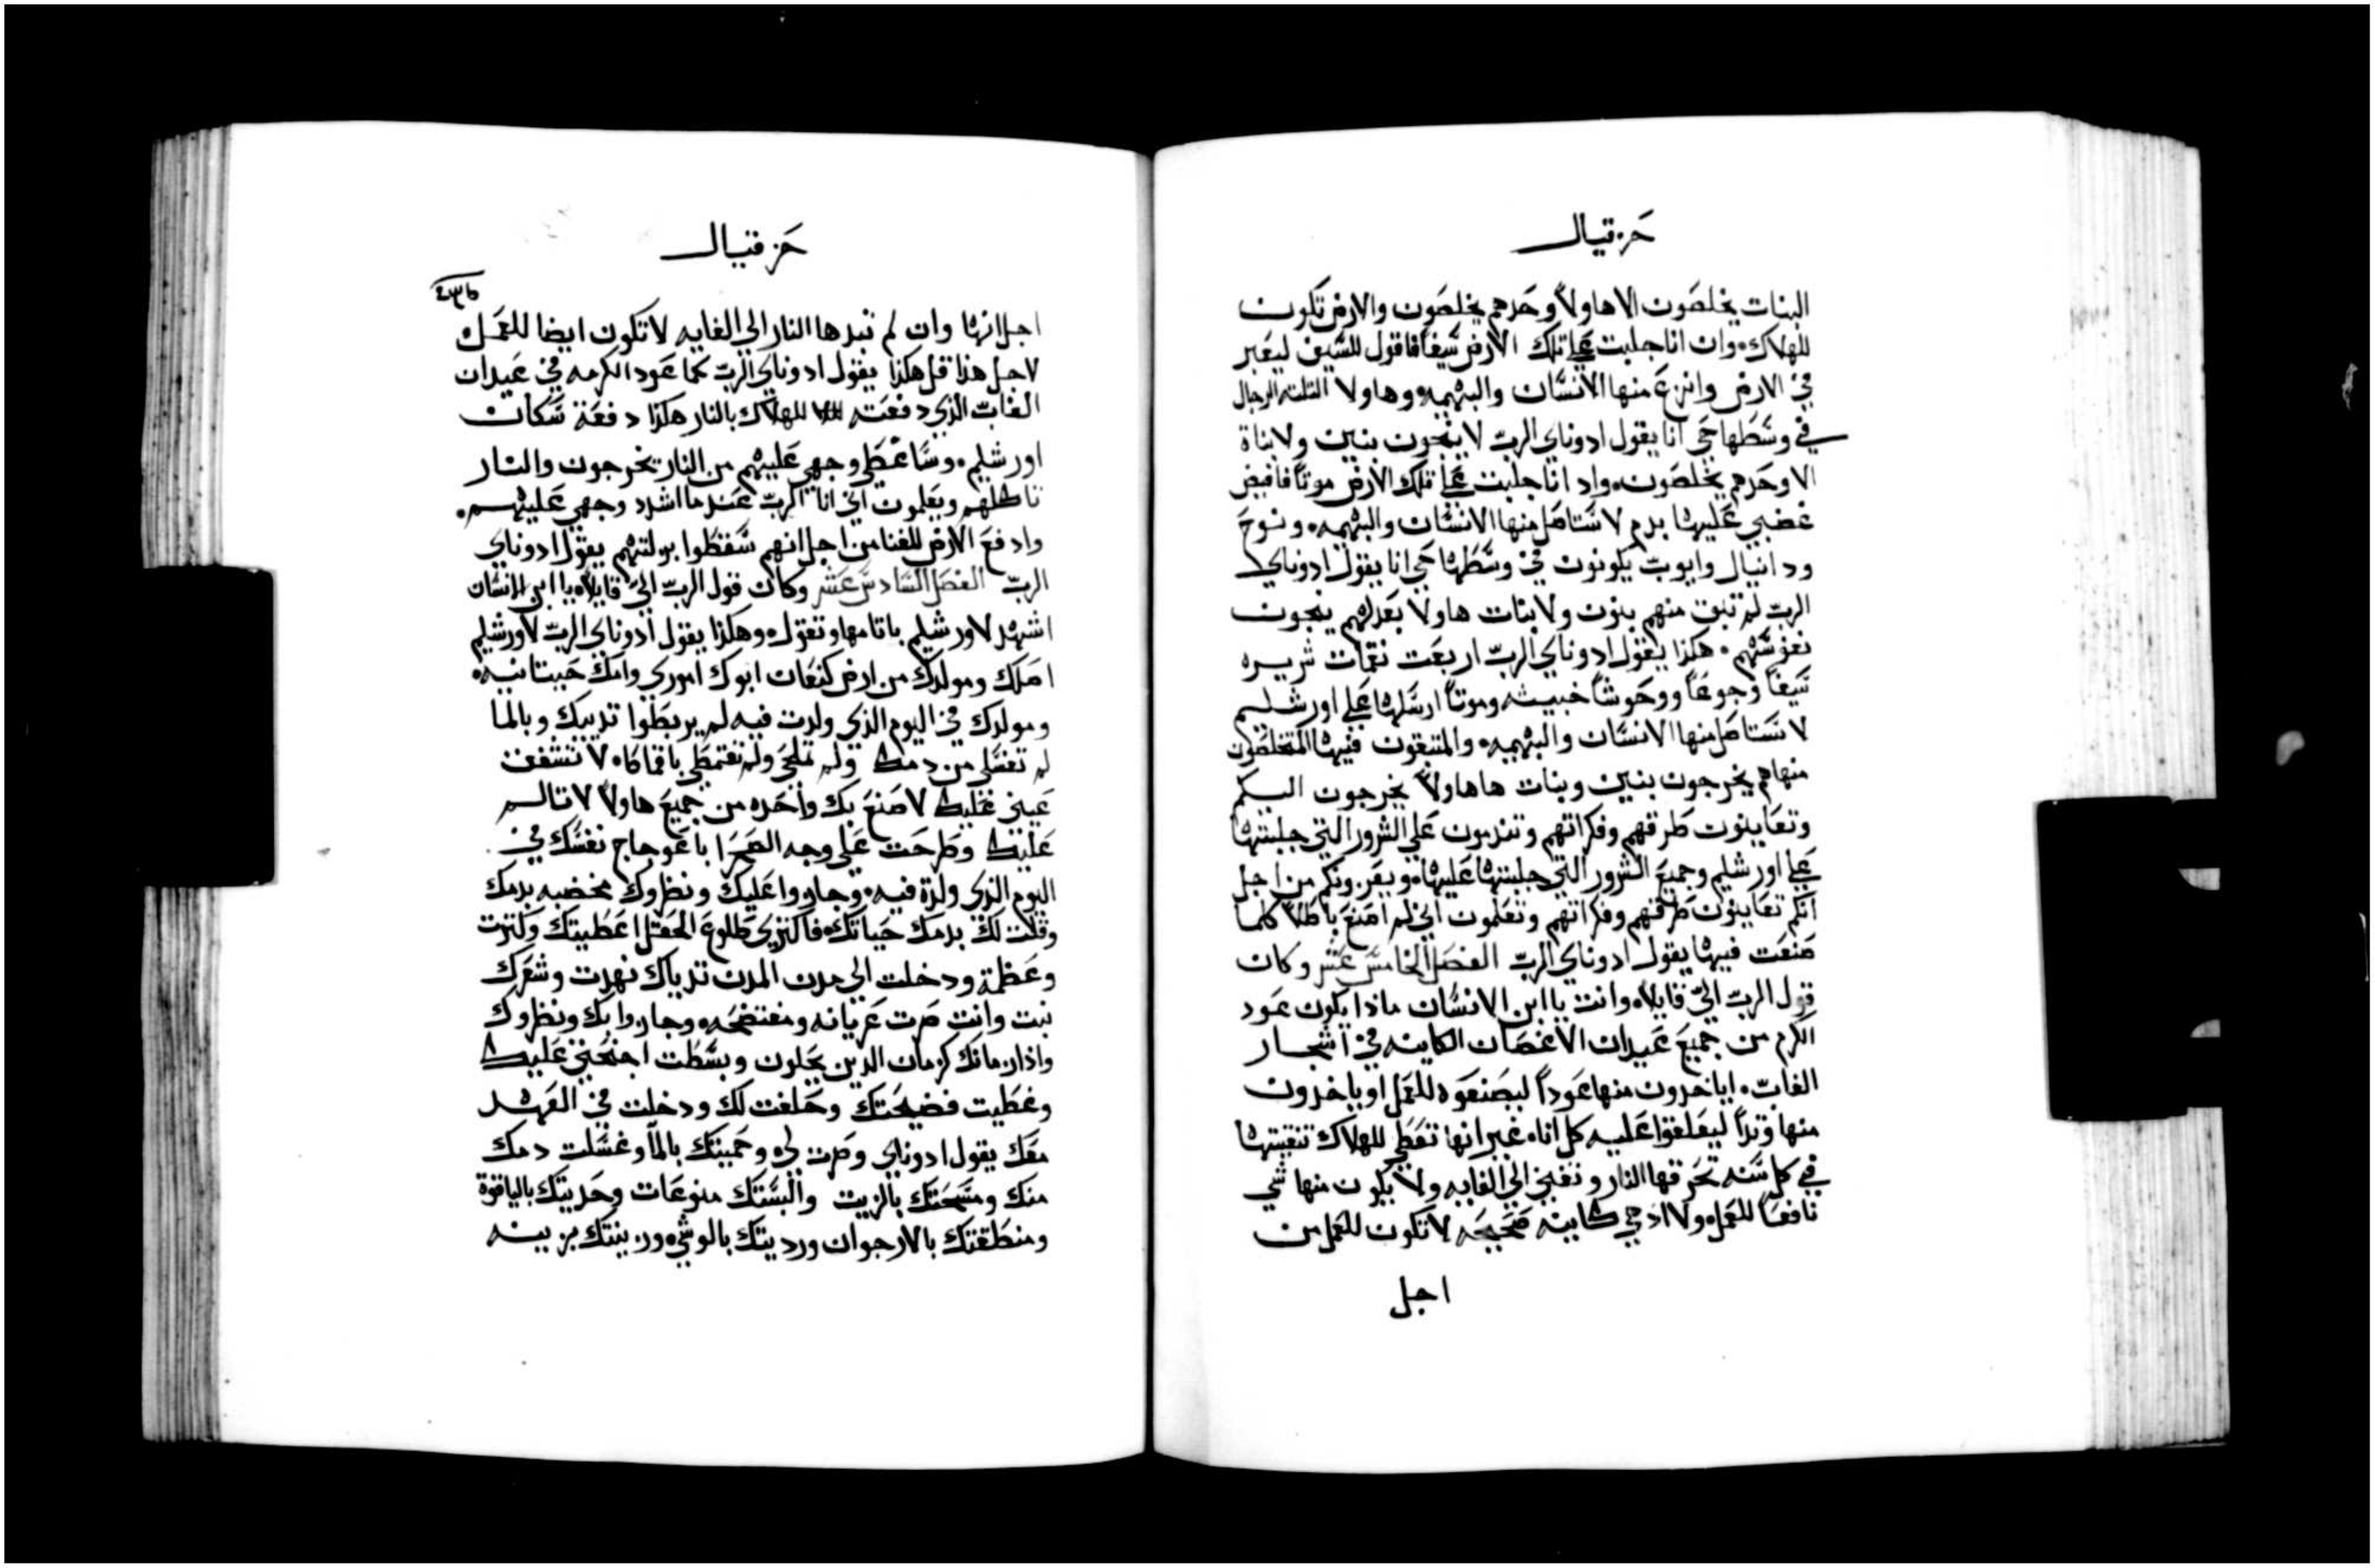 حزقيال
البنات يخلصون الا هاولاً وحدهم يخلصون والارض تكون
للهلاك، وان انا جلبت علي تلك الارض سيفاً فاقول للسيف ليعبر
في الارض وانزع منها الانسان والبهيمه، وهاولا الثلثه الرجال
في وسطها حي انا يقول ادوناي الرب لا ينجون بنين ولا بناة
الا وحدهم يخلصون، واد انا جلبت علي تلك الارض موتاً فافيض
غضبي عليها بدم لاستاصل منها الانسان والبهيمه، ونوح
ودانيال وايوب يكونون في وسطها حي انا يقول ادوناي
الرب لم تبق منهم بنون ولا بنات هاولا بعدلهم ينجون
نفوسهم، هكذا يقول ادوناي الرب اربعت نقمات شريره
سيفاً وجوعاً ووحوشاً خبيثه وموتاً ارسلها علي اورشليم
لاستاصل منها الانسان والبهيمه، والمتبقون فيها المتخلصون
منها هم يخرجون بنين وبنات ها هاولاً يخرجون اليكم
وتعاينون طرقهم وفكراتهم وتندمون علي الشرور التي جلبتها
علي اورشليم وجميع الشرور التي جلبتها عليها، ويعزونكم من اجل
انكم تعاينون طرقهم وفكراتهم وتعلمون اني لم اصنع باطلاً كلما
صنعت فيها يقول ادوناي الرب الفصل الخامس عشر وكان
قول الرب اليّ قايلاً، وانت يا ابن الانسان ماذا يكون عود
الكرم من جميع عيدان الاغصان الكاينه في اشجار
الغاب، اياخدون منها عوداً ليصنعوه للعمل او ياخدون
منها وتداً ليعلقوا عليه كل اناه غير انها تعطي للهلاك تنقيتها
في كل سنه تحرقها النار وتفني الي الغايه ولا يكون منها شي
نافعاً للعمل، ولا اد هي كاينه صحيحه لا تكون للعمل من
اجل
حزقيال
اجل انها وان لم تبدها النار الي الغايه لا تكون ايضا للعمل
لاجل هذا قل هكذا يقول ادوناي الرب كما عود الكرمه في عيدان
الغاب الذي دفعته للهلاك بالنار هكذا دفعة سكان
اورشليم، وساعطي وجهي عليهم من النار يخرجون والنار
تاكلهم ويعلمون اني انا الرب عندما اشدد وجهي عليهم،
وادفع الارض للفنا من اجل انهم سقطوا بزلتهم يقول ادوناي
الرب الفصل السادس عشر وكان قول الرب اليّ قايلاً، يا ابن الانسان
اشهد لاورشليم باثامها وتقول، وهكذا يقول ادوناي الرب لاورشليم
اصلك ومولدك من ارض كنعان ابوك اموري وامك حيتانيه،
ومولدك في اليوم الذي ولدت فيه لم يربطوا تدييك وبالما
لم تغتسلي من دمك ولم تملحي ولم تقتمطي باقماكاه لا تشفق
عيني عليك لاصنع بك واحده من جميع هاولاً لاتالم
عليك وطرحت علي وجه الصحرا باعوجاج نفسك في
اليوم الذي ولدة فيه، وجازوا عليك ونظروك مخضبه بدمك
وقلت لك بدمك حياتك، فاكتزي كطلوع الحقل اعطيتك وكتزت
وعظمة ودخلت الي مدن المدن تدياك نهدت وشعرك
نبت وانت صرت عريانه ومفتضحه، وجازوا بك ونظروك
واذا زمانك كزمان الدين يحلون وبسطت اجنحتي عليك
وغطيت فضيحتك وحلفت لك ودخلت في العهد
معك يقول ادوناي وصرت لي، وحميتك بالماً وغسلت دمك
منك ومسحتك بالزيت والبستك منوعات وحديتك بالياقوة
ومنطقتك بالارجوان ورديتك بالوشي، وزينتك بزينه